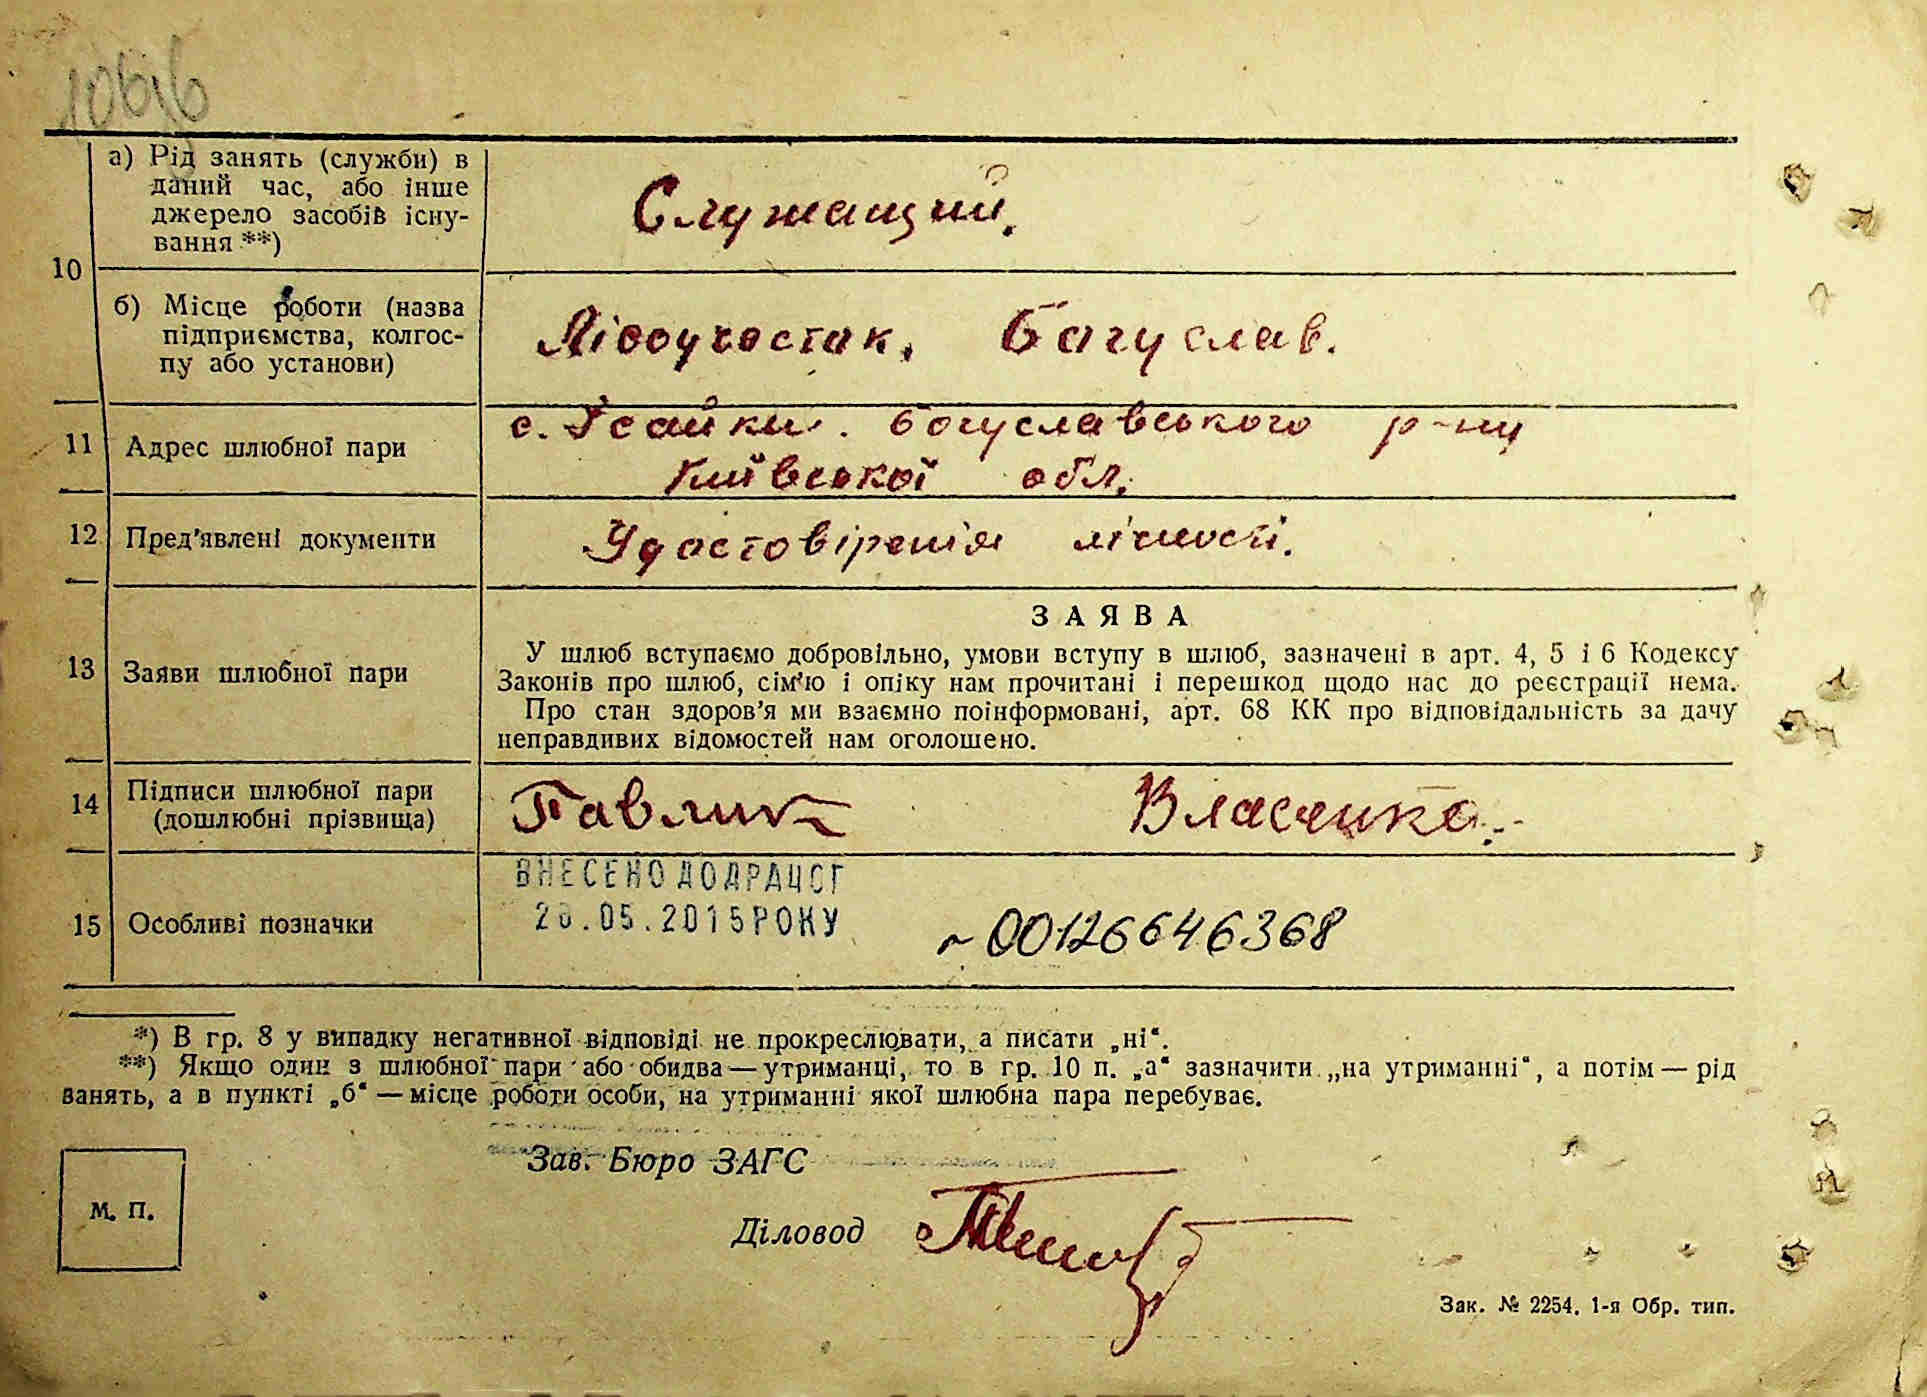 10б
а) Рід занять (служби) в
даний час, або інше
джерело засобів існу-
вання **)
Служащий.
10
б) Місце роботи (назва
підприємства, колгос-
пу або установи)
Лісоучасток, Богуслав.
11
Адрес шлюбної пари
с. Ісайки. Богуславського р-ну
Київської обл.
12
Пред'явлені документи
Удостовіренія лічності.
13
Заяви шлюбної пари
ЗАЯВА
У шлюб вступаємо добровільно, умови вступу в шлюб, зазначені в арт. 4, 5 і 6 Кодексу
Законів про шлюб, сім'ю і опіку нам прочитані і перешкод щодо нас до реєстрації нема.
Про стан здоров'я ми взаємно поінформовані, арт. 68 КК про відповідальність за дачу
неправдивих відомостей нам оголошено.
14
Підписи шлюбної пари
(дошлюбні прізвища)
Павлик Власенко.
15
Особливі позначки
ВНЕСЕНО ДО ДРАЦСГ
20.05.2015 РОКУ
~00126646368
*) В гр. 8 у випадку негативної відповіді не прокреслювати, а писати „ні“.
**) Якщо один з шлюбної пари або обидва — утриманці, то в гр. 10 п. „а“ зазначити „на утриманні“, а потім — рід
занять, а в пункті „б“ — місце роботи особи, на утриманні якої шлюбна пара перебуває.
Зав. Бюро ЗАГС
М. П.
Діловод
Зак. № 2254. 1-я Обр. тип.